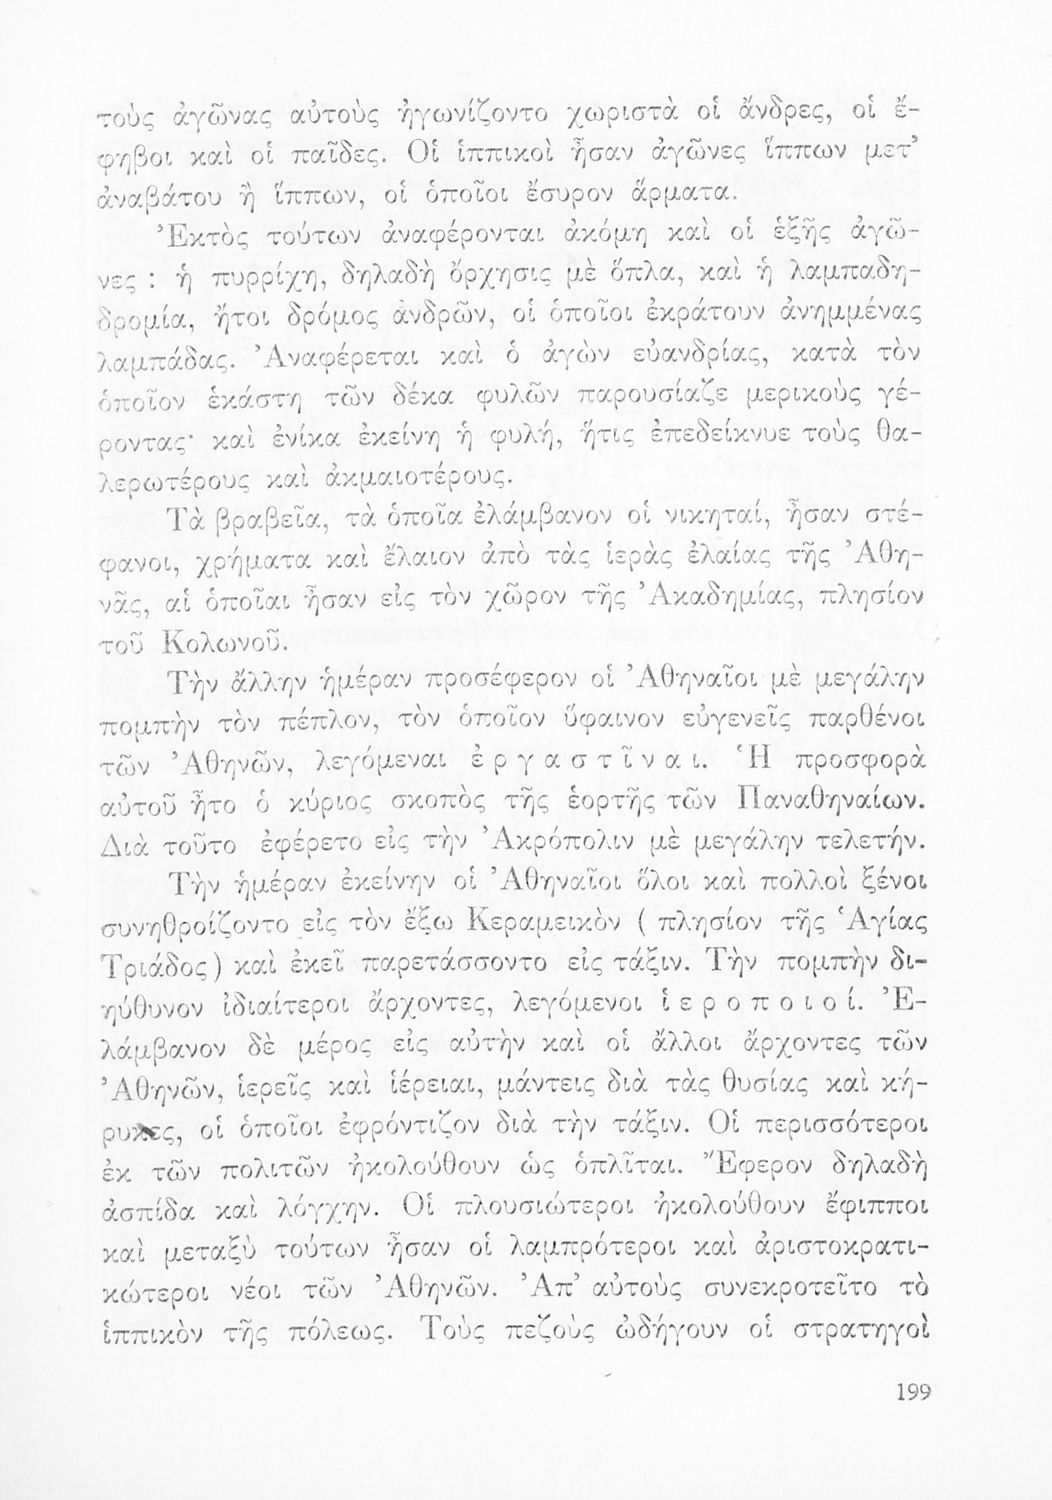 τοὺς ἀγῶνας αὐτοὺς ἠγωνίζοντο χωριστὰ οἱ ἄνδρες, οἱ ἔ-
φηβοι καὶ οἱ παῖδες. Οἱ ἱππικοὶ ἦσαν ἀγῶνες ἵππων μετ᾿
ἀναβάτου ἢ ἵππων, οἱ ὁποῖοι ἔσυρον ἅρματα.
Ἐκτὸς τούτων ἀναφέρονται ἀκόμη καὶ οἱ ἑξῆς ἀγῶ-
νες : ἡ πυρρίχη, δηλαδὴ ὄρχησις μὲ ὅπλα, καὶ ἡ λαμπαδη-
δρομία, ἤτοι δρόμος ἀνδρῶν, οἱ ὁποῖοι ἐκράτουν ἀνημμένας
λαμπάδας. Ἀναφέρεται καὶ ὁ ἀγὼν εὐανδρίας, κατὰ τὸν
ὁποῖον ἑκάστη τῶν δέκα φυλῶν παρουσίαζε μερικοὺς γέ-
ροντας· καὶ ἐνίκα ἐκείνη ἡ φυλή, ἥτις ἐπεδείκνυε τοὺς θα-
λερωτέρους καὶ ἀκμαιοτέρους.
Τὰ βραβεῖα, τὰ ὁποῖα ἐλάμβανον οἱ νικηταί, ἦσαν στέ-
φανοι, χρήματα καὶ ἔλαιον ἀπὸ τὰς ἱερὰς ἐλαίας τῆς Ἀθη-
νᾶς, αἱ ὁποῖαι ἦσαν εἰς τὸν χῶρον τῆς Ἀκαδημίας, πλησίον
τοῦ Κολωνοῦ.
Τὴν ἄλλην ἡμέραν προσέφερον οἱ Ἀθηναῖοι μὲ μεγάλην
πομπὴν τὸν πέπλον, τὸν ὁποῖον ὕφαινον εὐγενεῖς παρθένοι
τῶν Ἀθηνῶν, λεγόμεναι ἐ ρ γ α σ τ ῖ ν α ι. Ἡ προσφορὰ
αὐτοῦ ἦτο ὁ κύριος σκοπὸς τῆς ἑορτῆς τῶν Παναθηναίων.
Διὰ τοῦτο ἐφέρετο εἰς τὴν Ἀκρόπολιν μὲ μεγάλην τελετήν.
Τὴν ἡμέραν ἐκείνην οἱ Ἀθηναῖοι ὅλοι καὶ πολλοὶ ξένοι
συνηθροίζοντο εἰς τὸν ἔξω Κεραμεικὸν ( πλησίον τῆς Ἁγίας
Τριάδος ) καὶ ἐκεῖ παρετάσσοντο εἰς τάξιν. Τὴν πομπὴν δι-
ηύθυνον ἰδιαίτεροι ἄρχοντες, λεγόμενοι ἱ ε ρ ο π ο ι ο ί. Ἐ-
λάμβανον δὲ μέρος εἰς αὐτὴν καὶ οἱ ἄλλοι ἄρχοντες τῶν
Ἀθηνῶν, ἱερεῖς καὶ ἱέρειαι, μάντεις διὰ τὰς θυσίας καὶ κή-
ρυκες, οἱ ὁποῖοι ἐφρόντιζον διὰ τὴν τάξιν. Οἱ περισσότεροι
ἐκ τῶν πολιτῶν ἠκολούθουν ὡς ὁπλῖται. Ἔφερον δηλαδὴ
ἀσπίδα καὶ λόγχην. Οἱ πλουσιώτεροι ἠκολούθουν ἔφιπποι
καὶ μεταξὺ τούτων ἦσαν οἱ λαμπρότεροι καὶ ἀριστοκρατι-
κώτεροι νέοι τῶν Ἀθηνῶν. Ἀπ᾿ αὐτοὺς συνεκροτεῖτο τὸ
ἱππικὸν τῆς πόλεως. Τοὺς πεζοὺς ὡδήγουν οἱ στρατηγοὶ
199